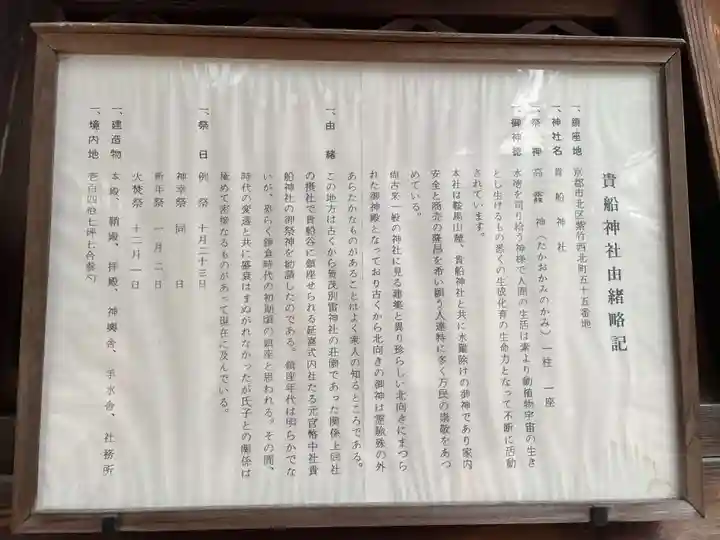 貴船神社由緒略記
一、鎮座地 京都市北区紫竹西北町五十五番地
一、神社名 貴船神社
一、祭神 高龗神(たかおかみのかみ)一柱 一座
一、御神徳 水徳を司り給う神様で人間の生活は素より動植物宇宙の生き
とし生けるもの悉くの生成化育の生命力となって不断に活動
されています。
本社は鞍馬山麓、貴船神社と共に水難除けの御神であり家内
安全と商売の隆昌を希い願う人達特に多く万民の崇敬をあつ
めている。
尚古来一般の神社に見る建築と異り珍らしい北向きにまつら
れた御神殿となっており古くから北向きの御神は霊験殊の外
あらたかなものがあることはよく衆人の知るところである。
一、由緒 この地方は古くから賀茂別雷神社の荘領であった関係上同社
の摂社で貴船谷に鎮座せられる延喜式内社たる元官幣中社貴
船神社の御祭神を勧請したのである。鎮座年代は明らかでな
いが、恐らく鎌倉時代の初期頃の鎮座と思われる。その間、
時代の変遷と共に盛衰はまぬがれなかったが氏子との関係は
極めて密接なるものがあって現在に及んでいる。
一、祭日 例祭 十月二十三日
神幸祭 同日
新年祭 一月二日
火焚祭 十二月一日
一、建造物 本殿、鞘殿、拝殿、神輿舎、手水舎、社務所
一、境内地 壱百四拾七坪七合参勺